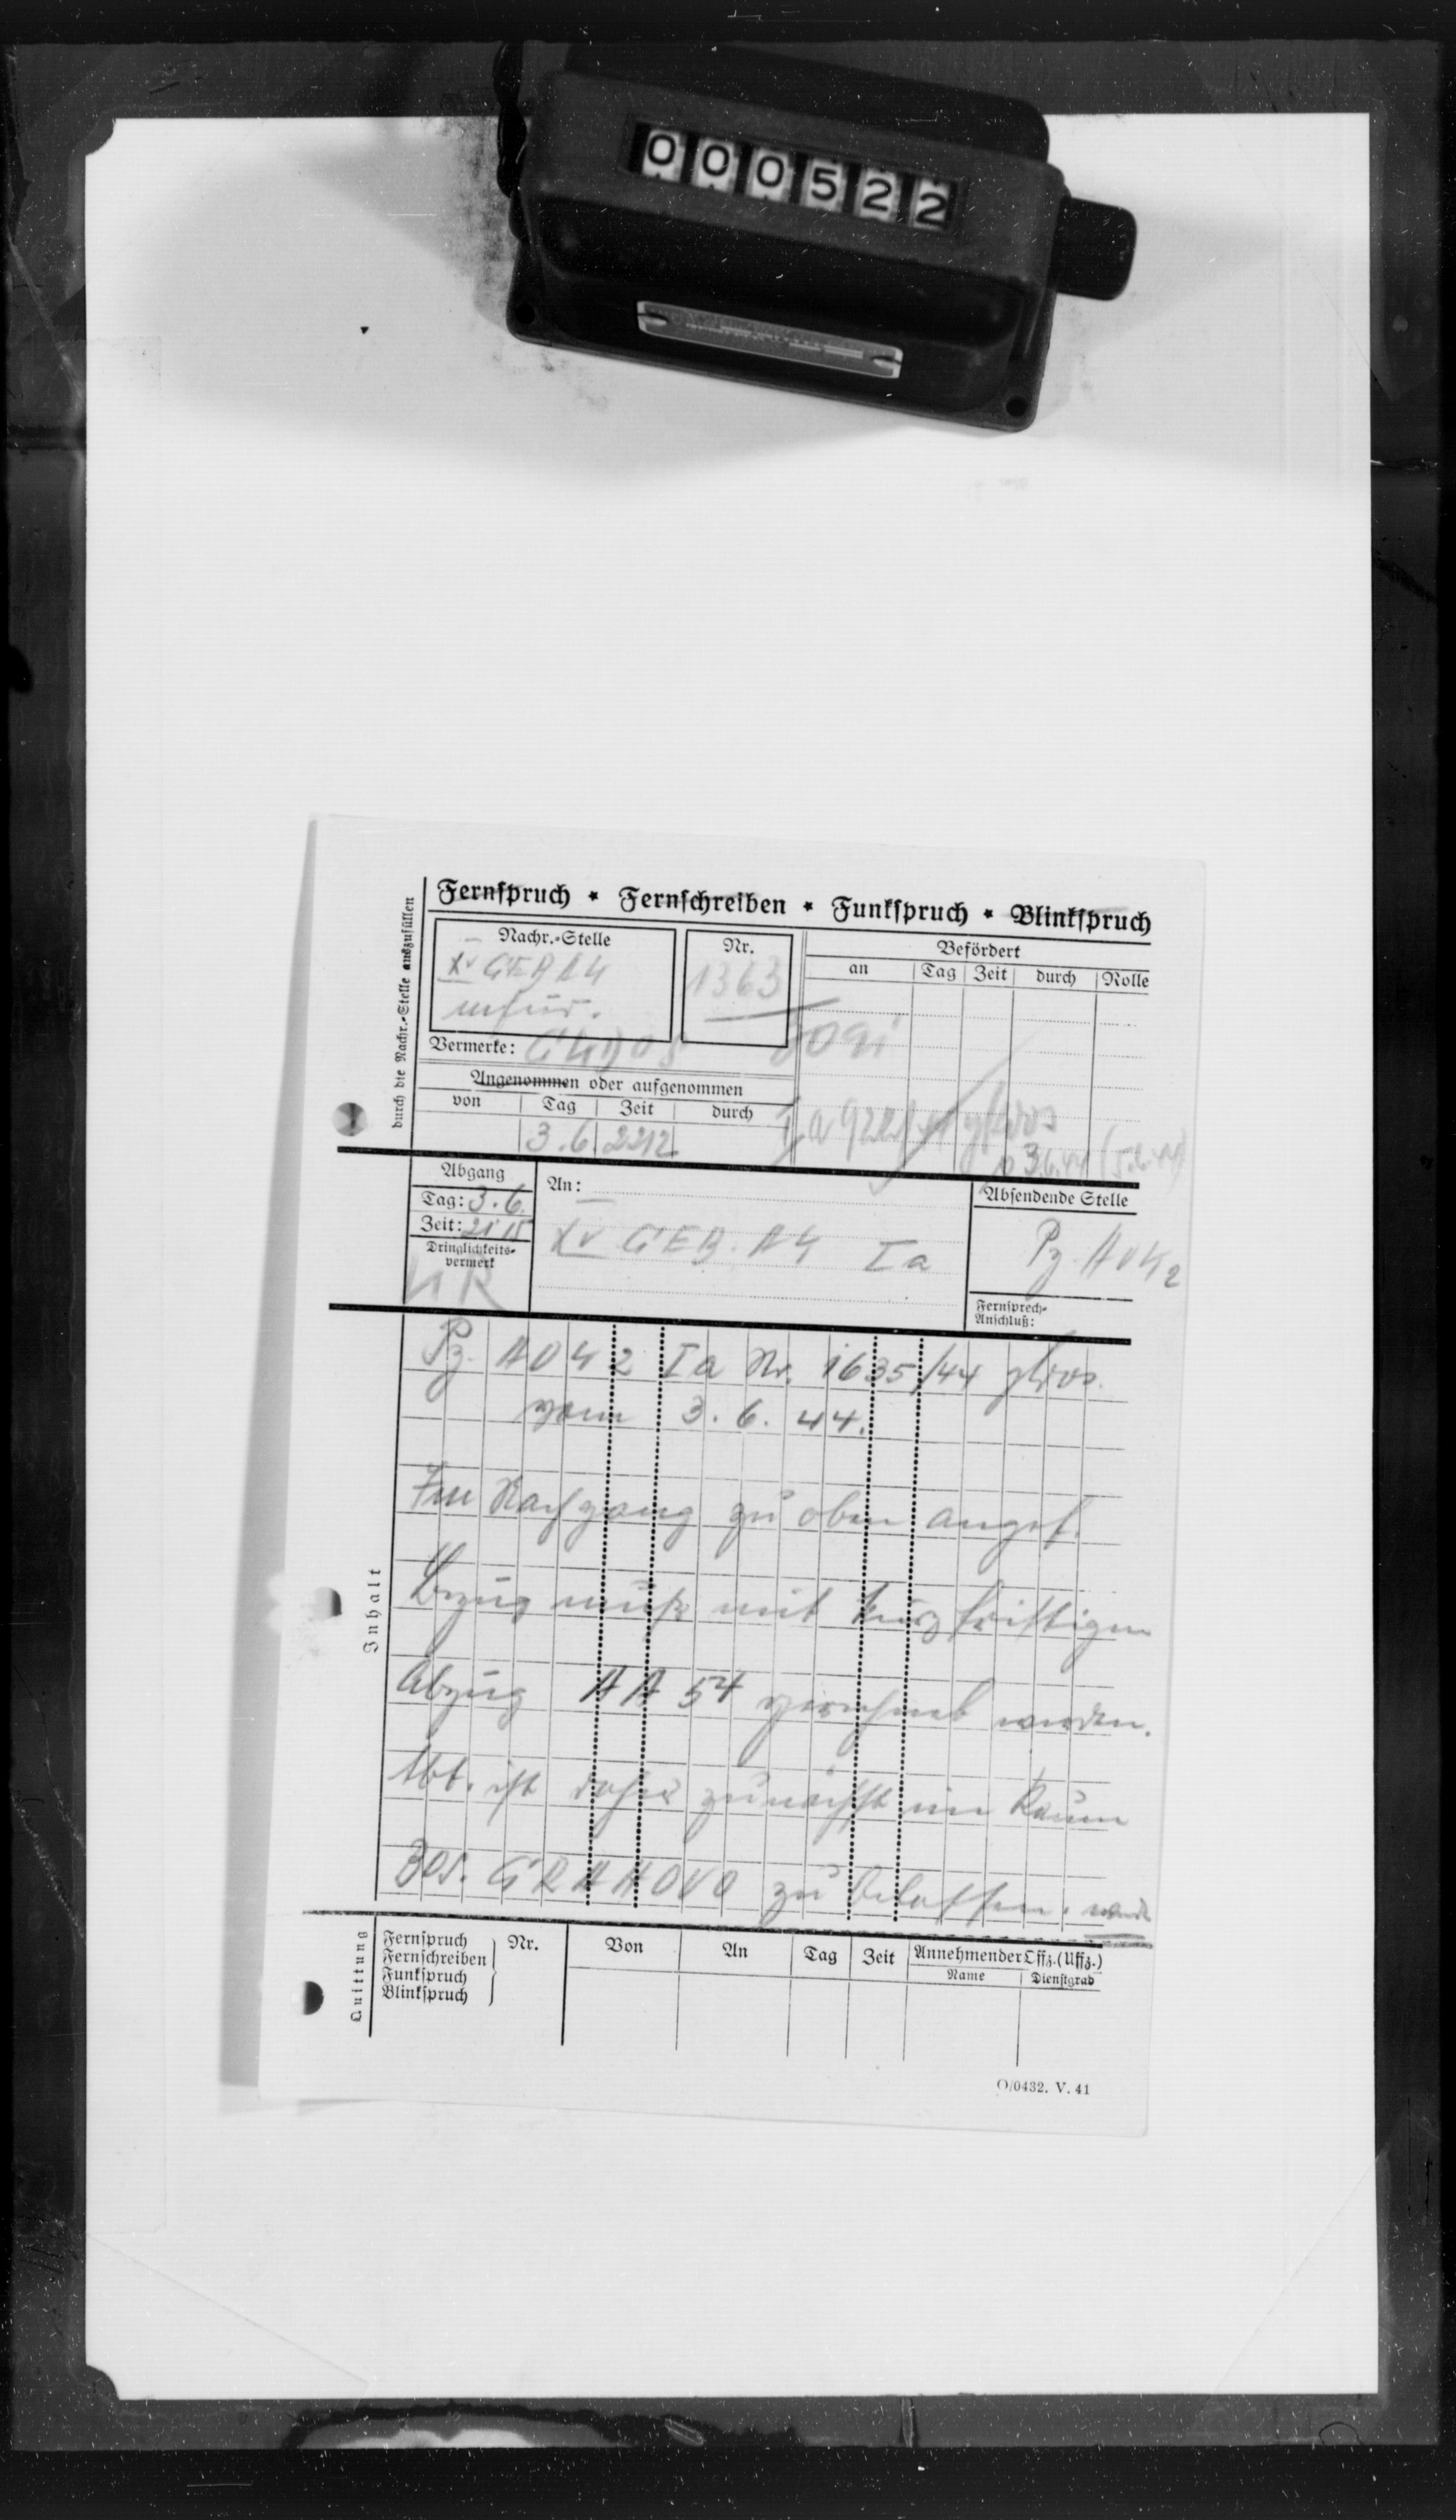 000522
Fernspruch * Fernschreiben * Funkspruch * Blinkspruch
durch die Nachr.-Stelle auszufüllen
Nachr.-Stelle
XV GEB AK
Nr.
1363
Vermerke: GKDOS
Befördert
an Tag Zeit durch Rolle
Angenommen oder aufgenommen
von Tag Zeit durch
3.6. 2212
Abgang
Tag: 3.6.
Zeit: 2115
Dringlichkeits-
vermerk
KR
An:
XV GEB. AK Ia
Absendende Stelle
Pz. AOK 2
Fernsprech-
Anschluß:
Inhalt
Pz. AOK 2 Ia Nr. 1635/44 gKdos.
vom 3.6.44.
Im Nachgang zu oben angef.
Bezug muß mit kurzfristigem
Abzug AA 54 gerechnet werden.
Abt. ist daher zunächst im Raum
BOS. GRAHOVO zu belassen.
Quittung
Fernspruch
Fernschreiben
Funkspruch
Blinkspruch
Nr. Von An Tag Zeit Annehmender Offz. (Uffz.)
Name Dienstgrad
O/0432. V. 41